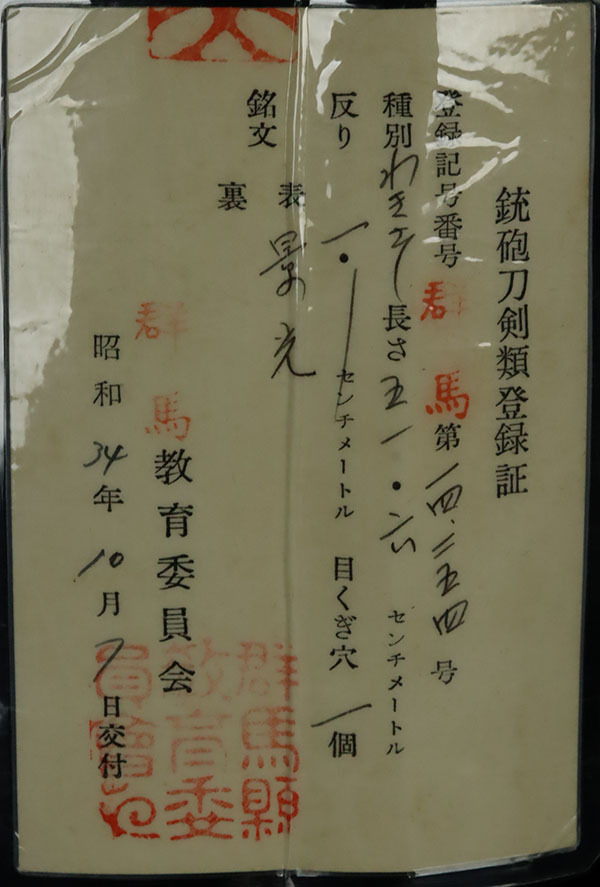 銃砲刀剣類登録証
登録記号番号 群馬 第一四二五四号
種別 わきざし 長さ 五一・六 センチメートル
反り 一・一 センチメートル 目くぎ穴 一個
銘文 表 景光
裏
群馬教育委員会
昭和34年10月7日交付
群馬縣
教育委
員會印